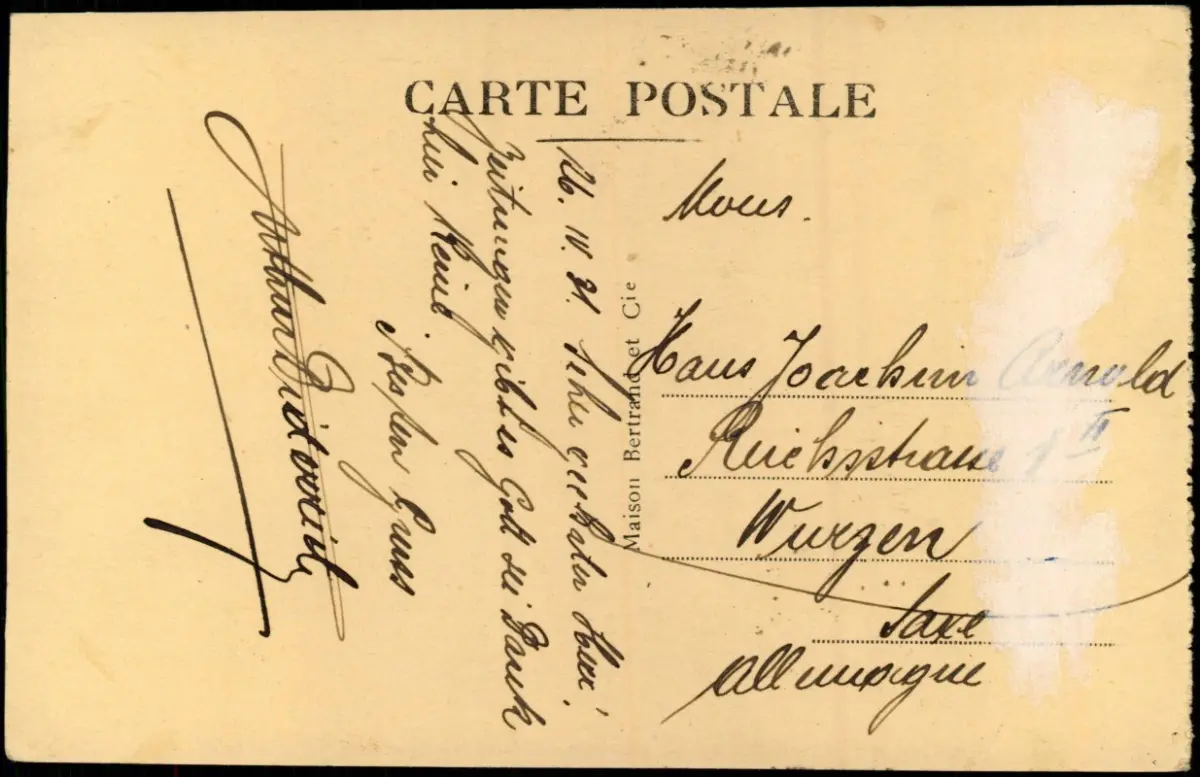 CARTE POSTALE
26. IV. 31. Sehr geehrter Herr!
Zeitungen gibt es Gott sei Dank
hier keine
Besten Gruss
Arthur
Maison Bertrand et Cie
Mons.
Hans Joachim Arnold
Reichsstrasse 1 II
Wurzen
Saxe
Allemagne